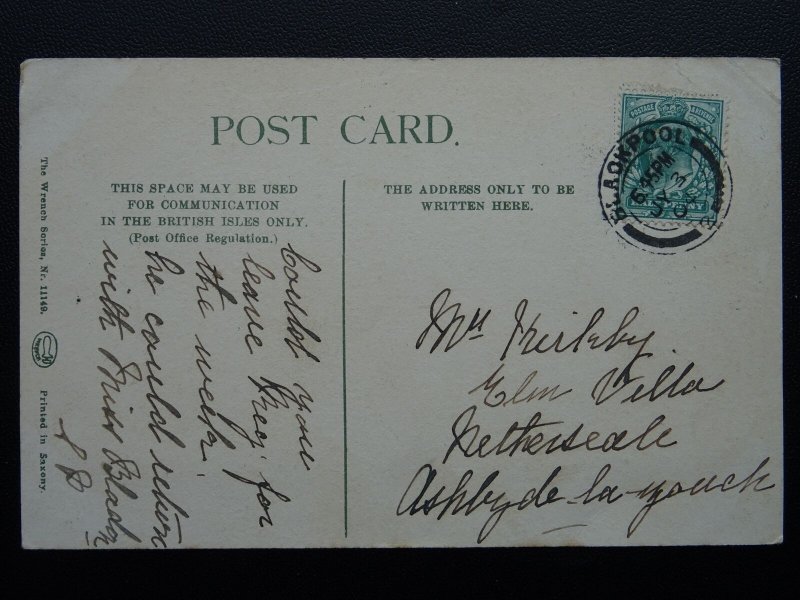 POST CARD.
THIS SPACE MAY BE USED
FOR COMMUNICATION
IN THE BRITISH ISLES ONLY.
(Post Office Regulation.)
THE ADDRESS ONLY TO BE
WRITTEN HERE.
The Wrench Series, Nr. 11149.
Printed in Saxony.
POSTAGE & REVENUE
HALFPENNY
BLACKPOOL
6.45PM
Could you
leave Reg. for
the week.
he could return
with Miss
Kirkby
Elm Villa
Netherseale
Ashby de-la-zouch